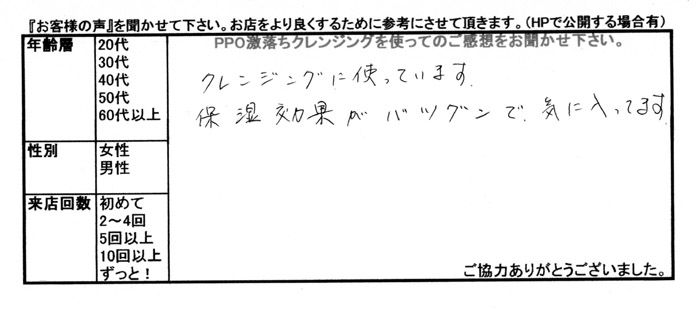 『お客様の声』を聞かせて下さい。お店をより良くするために参考にさせて頂きます。（HPで公開する場合有）
年齢層
20代
30代
40代
50代
60代以上
性別
女性
男性
来店回数
初めて
2〜4回
5回以上
10回以上
ずっと！
PPO激落ちクレンジングを使ってのご感想をお聞かせ下さい。
クレンジングに使っています。
保湿効果がバツグンで、気に入ってます
ご協力ありがとうございました。